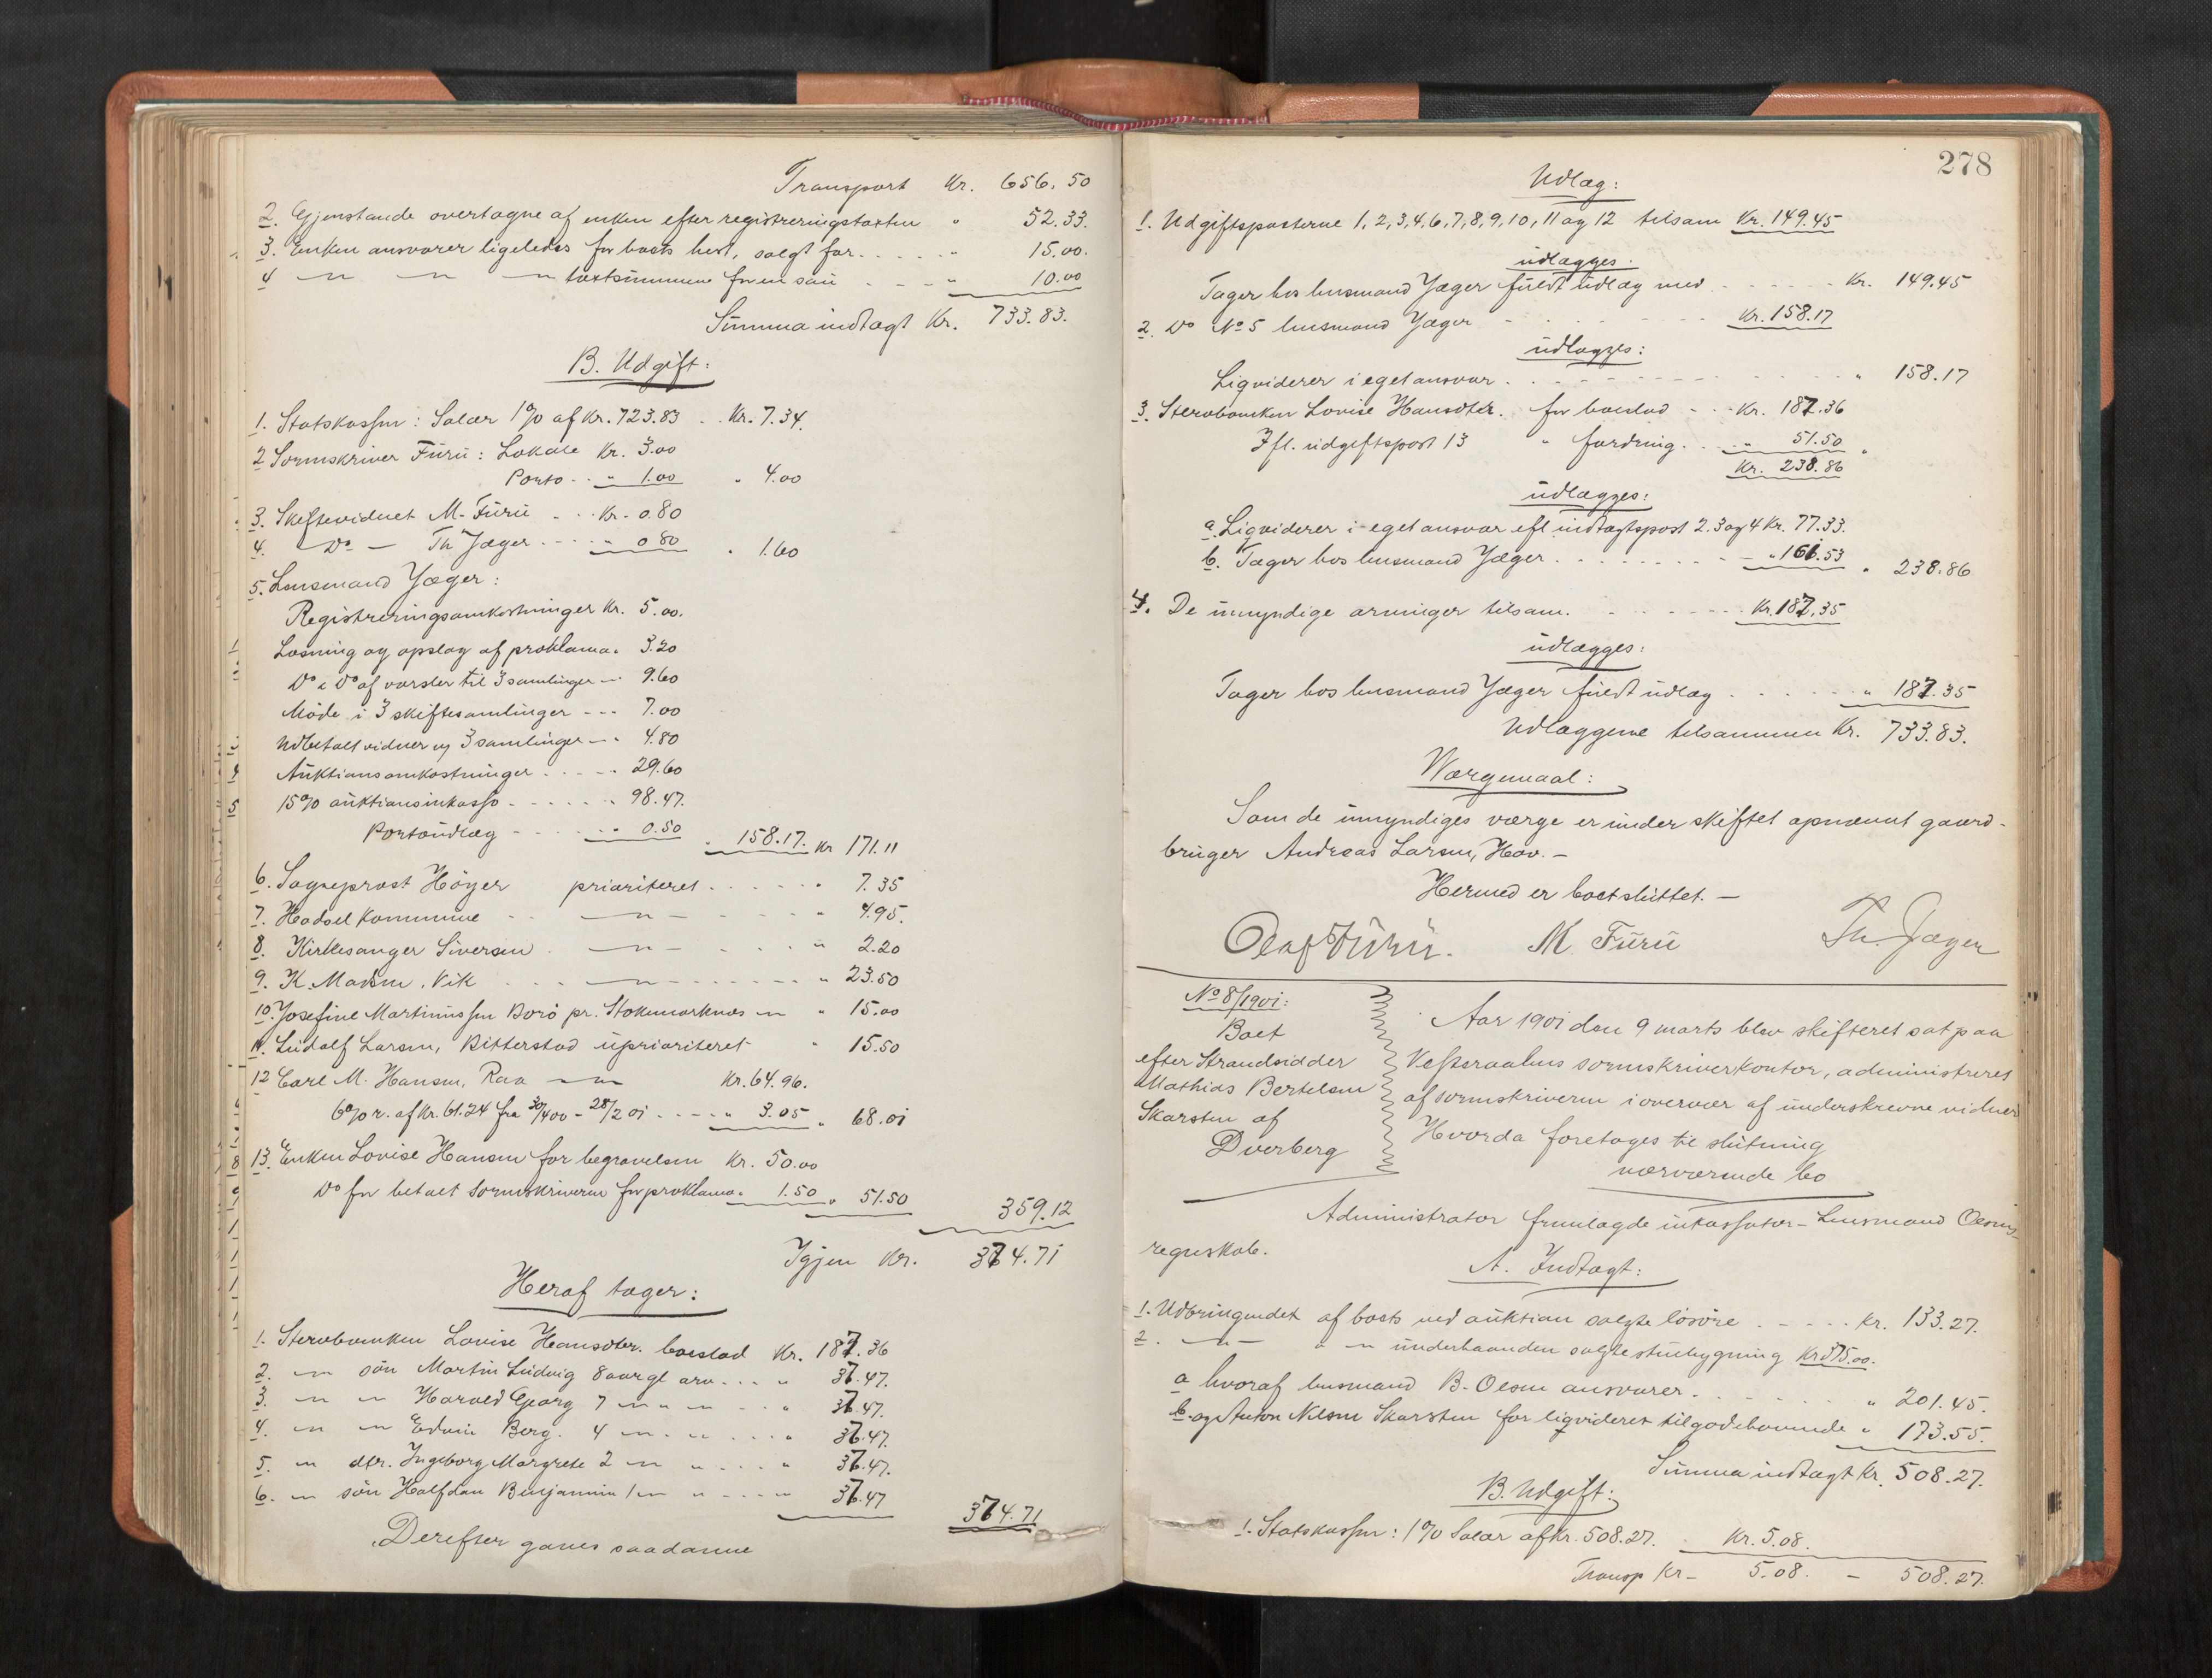 Transport Kr. 656.50
2. Gjenstande overtagne af enken efter registreringstaxten " 52.33.
3. Enken ansvarer ligeledes for boets hest, solgt for. . . . . " 15.00.
4 — " — — " — — " — taxtsummene for en sau . . . " 10.00
Summa indtægt Kr. 733.83.
B. Udgift:
1. Statskassen: Salær 1% af Kr. 723.83 . . Kr. 7.34.
2 Sorenskriver Furu: Lokale Kr. 3.00
Porto . . " 1.00 " 4.00
3. Skiftevidnet M. Furu . . . Kr. 0.80
4. — Do — Th Jæger . . . . " 0.80 " 1.60
5. Lensmand Jæger:
Registreringsomkostninger Kr. 5.00.
Læsning og opslag af proklama " 3.20
Do & Do af varsler til 3 samlinger — " 9.60
Möde i 3 skiftesamlinger - - - 7.00
Udbetalt vidner og 3 samlinger — " 4.80
Auktionsomkostninger . . . . . 29.60
15% auktionsinkasso . . . . . . " 98.47.
Portoudlæg . . . . . " 0.50 " 158.17. Kr 171.11
6. Sogneprost Höyer prioriteret . . . . . . " 7.35
7. Hadsel Kommune . . — " — . . . . . " 4.95.
8. Kirkesanger Siversen . — " — . . . " 2.20
9. K. Madsen, Vik . . . — " — . . . . . " 23.50
10. Josefine Martinussen Borö pr. Stokmarknæs — " " 15.00
11. Ludolf Larsen, Bitterstad uprioriteret " 15.50
12 Carl M. Hansen, Raa — " — Kr. 64.96.
6% r. af Kr. 61.24 fra 30/4 00 - 28/2 01 . . . . " 3.05 " 68.01
13. Enken Lovise Hansen for begravelsen Kr. 50.00
Do for betalt sorenskriveren for proklama " 1.50 " 51.50 359.12
Igjen Kr. 374.71
Heraf tager:
1. Stervboenken Lovise Hansdtr. boeslod Kr. 187.36
2. — " sön Martin Ludvig 8 aar gl arv . . . " 37.47.
3. — " — " Harald Georg 7 — " " — " . . . " 37.47.
4. — " — " Edvin Berg. 4 — " . " . . . . " 37.47.
5. — " dtr. Ingeborg Margrete 2 — " " . . . . " 37.47.
6. — " sön Halfdan Benjamin 1 — " " . . . — " 37.47 374.71
Derefter gaves saadanne
278
Udlæg:
1. Udgiftsposterne 1, 2, 3, 4, 6, 7, 8, 9, 10, 11 og 12 tilsam Kr. 149.45
udlægges.
Tager hos lensmand Jæger fuldt udlæg med . . . . . . Kr. 149.45
2. Do No 5 lensmand Jæger . . . . . . . Kr. 158.17
udlægges:
Liqviderer i eget ansvar . . . . . . . . . . . . . " 158.17
3. Stervboenken Lovise Hansdtr. for boeslod . . . Kr. 187.36
Ifl. udgiftspost 13 " fordring. . . . " 51.50 "
Kr. 238.86
udlægges:
a. Liqviderer i eget ansvar efl indtægtspost 2. 3 og 4 Kr. 77.33.
b. Tager hos lensmand Jæger . . . . . . . . — " 161.53 " 238.86
4. De umyndige arvinger tilsam. . . . . . . . Kr. 187.35
udlægges:
Tager hos lensmand Jæger fuldt udlæg . . . . . . . " 187.35
Udlæggene tilsammen Kr. 733.83.
Værgemaal:
Som de umyndiges værge er under skiftet opnævnt gaard-
bruger Andreas Larsen, Hov. —
Hermed er boet sluttet. —
Olaf Furu. M Furu Th. Jæger
No 8/1901:
Boet
efter Strandsidder
Mathias Bertelsen
Skarsten af
Dverberg
Aar 1901 den 9 marts blev skifteret sat paa
Vesteraalens sorenskriverkontor, administreret
af sorenskriveren i overvær af underskrevne vidner
Hvorda foretoges til slutning
nærværende bo
Administrator fremlagde inkassator - Lensmand Olsens
regnskab.
A. Indtægt:
1. Udbringendet af boets ved auktion solgte lösöre . . . . . Kr. 133.27.
2. — " — " — " underhaanden solgte stuebygning Kr 375.00.
a hvoraf lensmand B. Olsen ansvarer. . . . . . . " 201.45.
b. og Anton Nilsen Skarsten for liqvideret tilgodehavende " 173.55.
Summa indtægt Kr. 508.27.
B. Udgift:
1. Statskassen: 1% Salær af Kr. 508.27. . Kr. 5.08.
Transp Kr - 5.08. — 508.27.